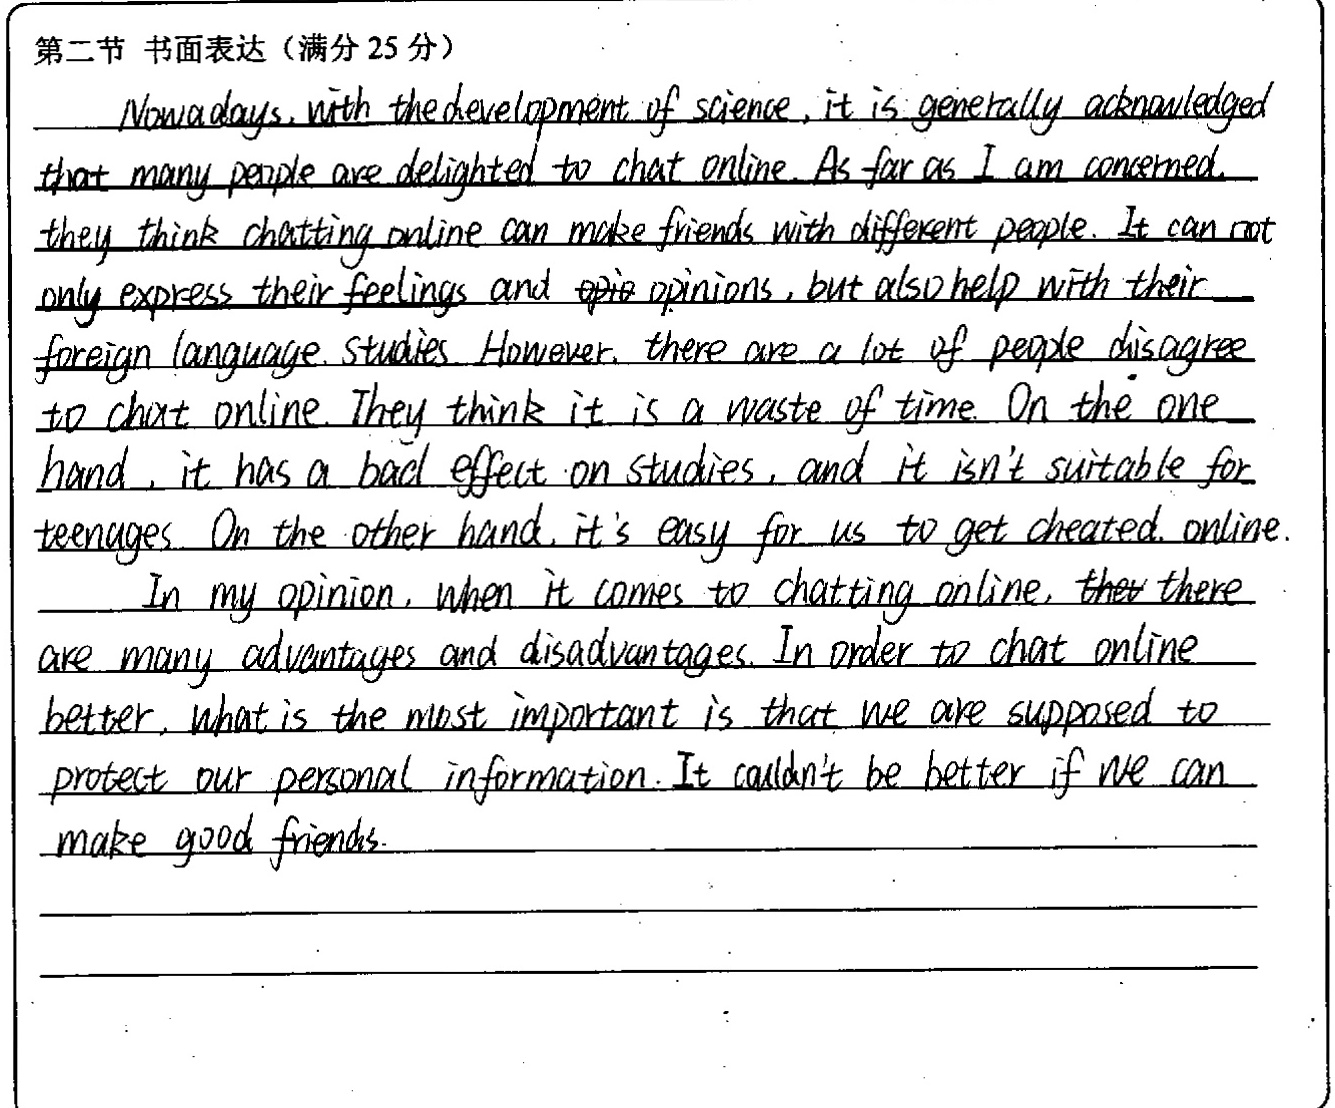 第二节 书面表达（满分 25 分）
Nowadays, with the development of science, it is generally acknowledged
that many people are delighted to chat online. As far as I am concerned,
they think chatting online can make friends with different people. It can not
only express their feelings and opio opinions, but also help with their
foreign language studies. However, there are a lot of people disagree
to chat online. They think it is a waste of time. On the one
hand, it has a bad effect on studies, and it isn't suitable for
teenages. On the other hand, it's easy for us to get cheated. online.
In my opinion, when it comes to chatting online, ther there
are many advantages and disadvantages. In order to chat online
better, what is the most important is that we are supposed to
protect our personal information. It couldn't be better if we can
make good friends.